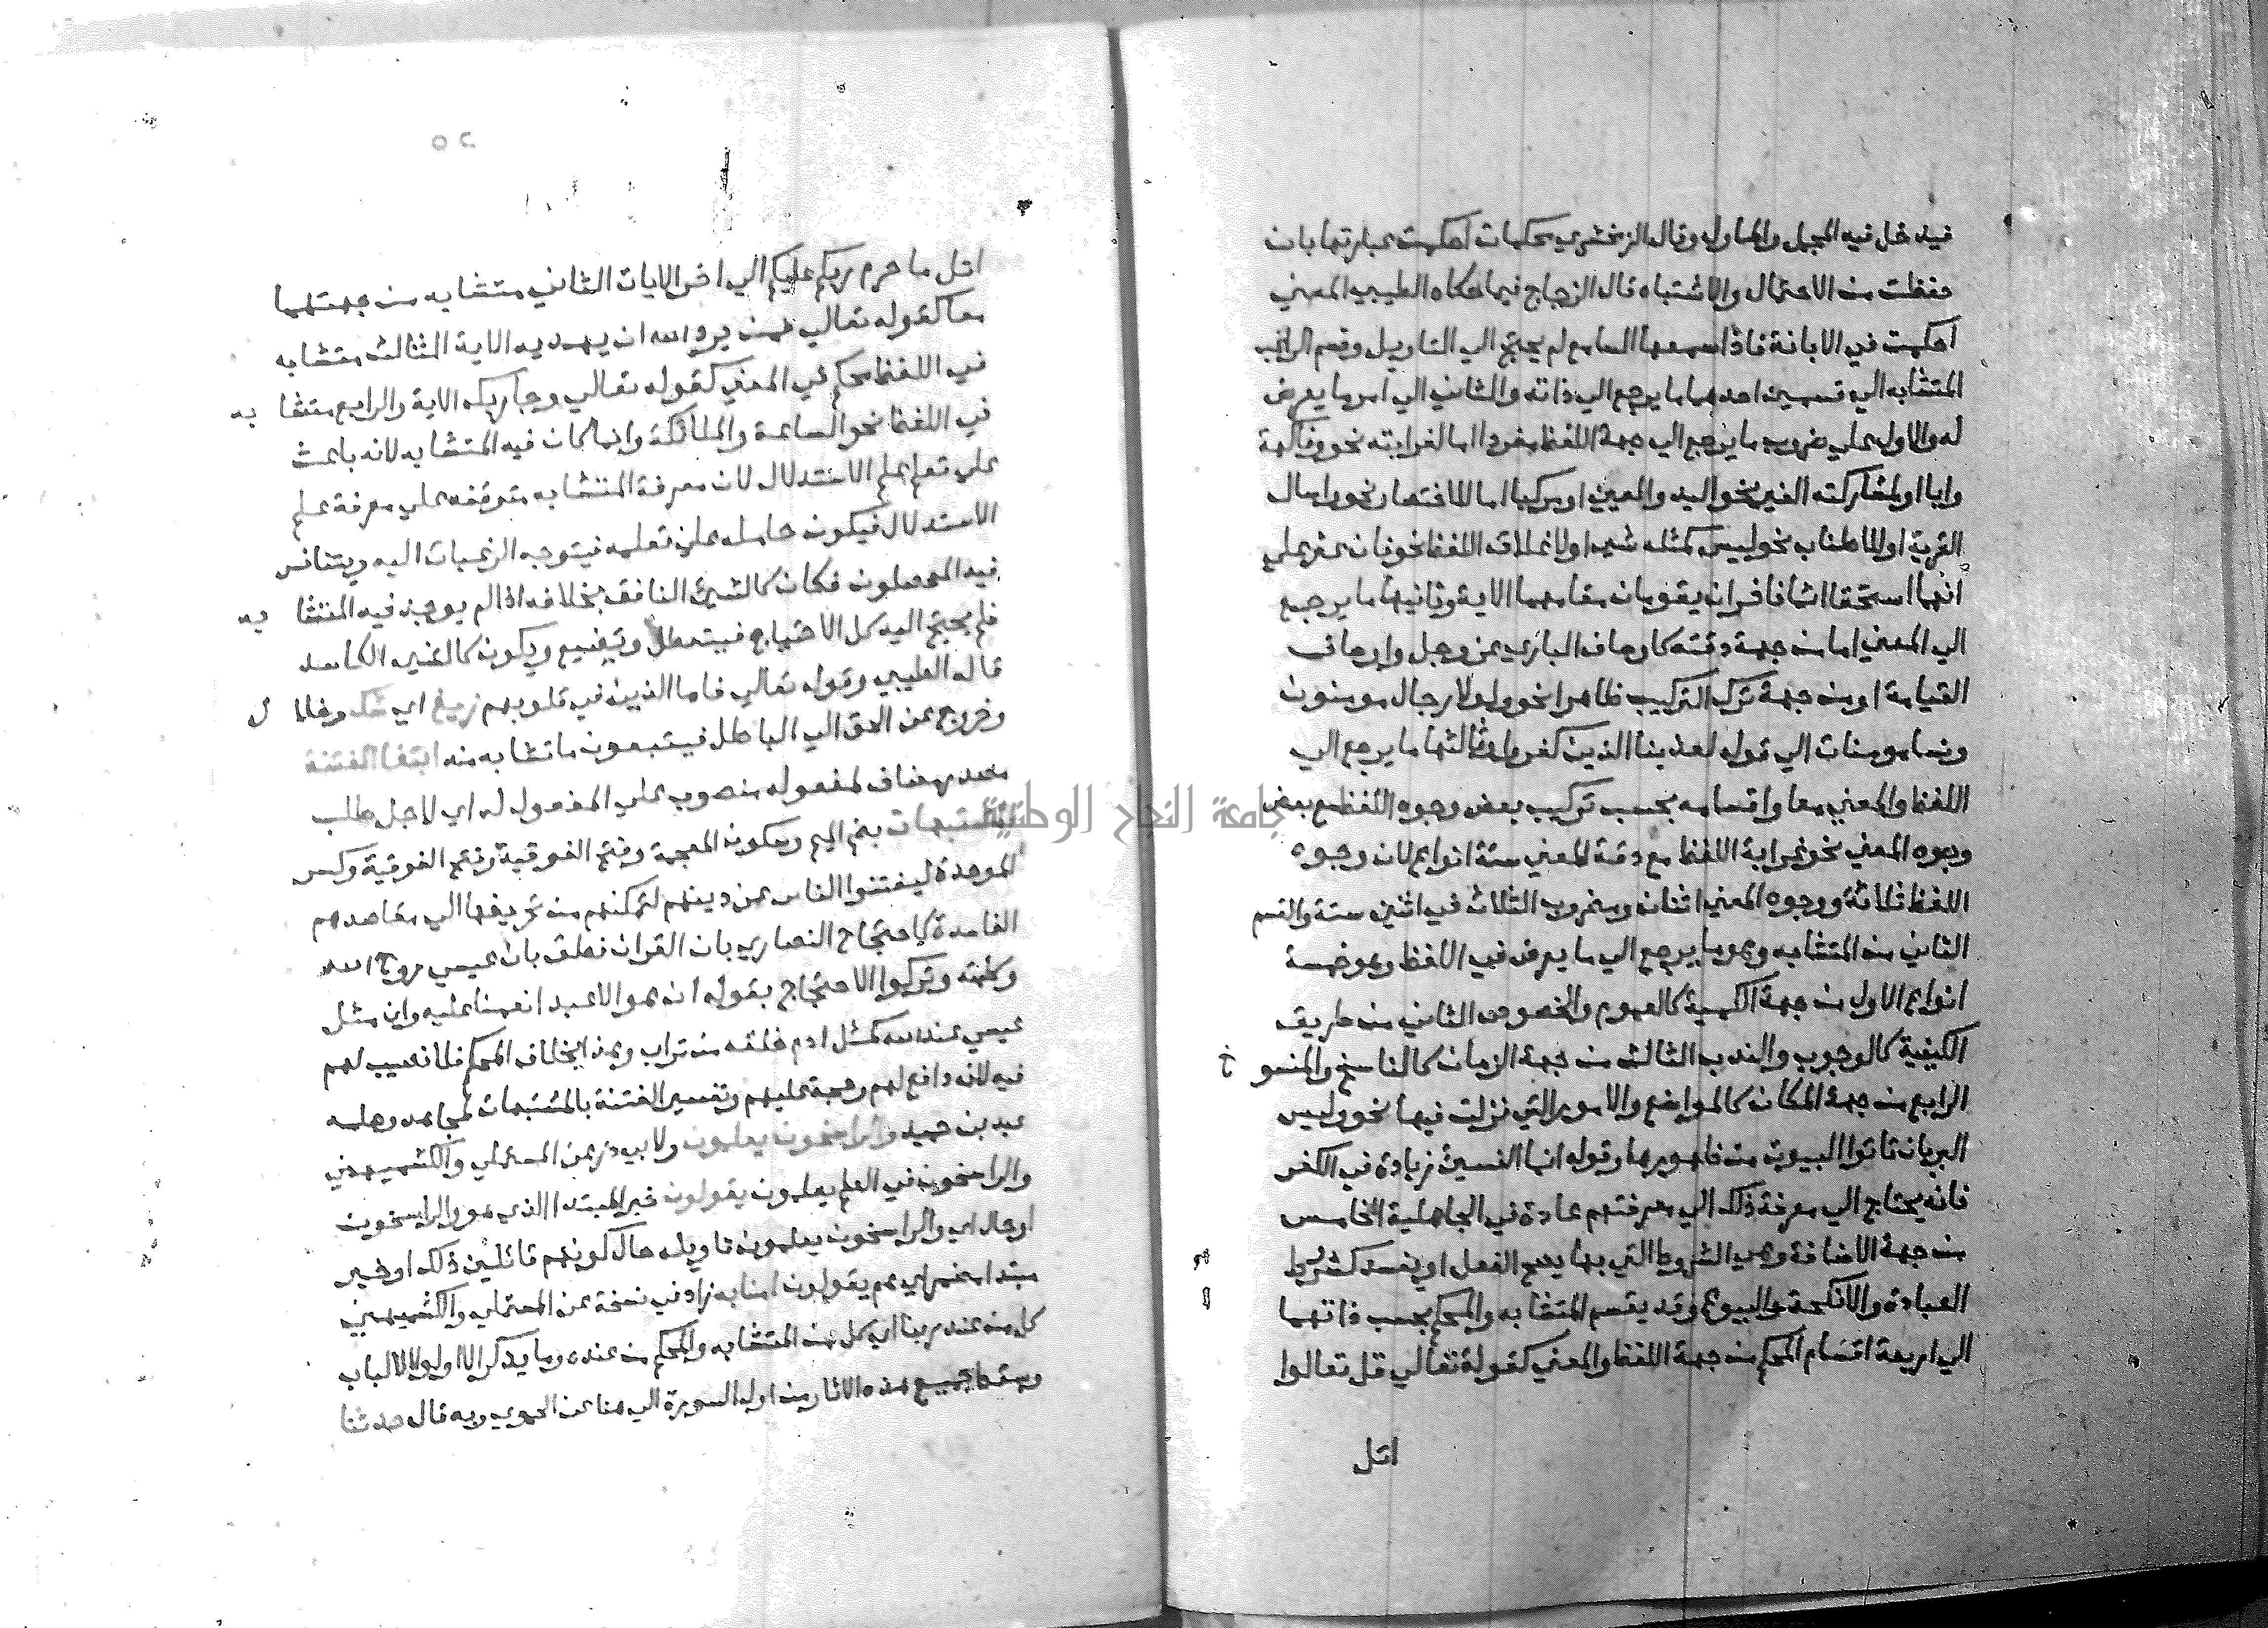 فيدخل فيه المجمل والماول وقال الزمخشري محكمات احكمت عبارتها بان
حفظت من الاحتمال والاشتباه قال الزجاج فيما حكاه الطيبي المعني
احكمت في الابانة فاذا سمعها السامع لم يحتج الي التاويل وقسم الراغب
المتشابه الي قسمين احدهما ما يرجع الي ذاته والثاني الي امر ما يعرض
له والاول علي ضروب ما يرجع الي جهة اللفظ مفردا اما لغرابته نحو وفاكهة
وابا او لمشاركته الغير نحو اليد والعين او مركبا اما للاختصار نحو واسال
القرية او للاطناب نحو ليس كمثله شي او لاغلاق اللفظ نحو فان عثر علي
انهما استحقا اثما فاخران يقومان مقامهما الاية وثانيها ما يرجع
الي المعني اما من جهة دقته كاوصاف الباري عز وجل واوصاف
القيامة او من جهة ترك التركيب ظاهرا نحو ولولا رجال مومنون
ونسا مومنات الي قوله لعذبنا الذين كفروا وثالثها ما يرجع الي
اللفظ والمعني معا واقسامه بحسب تركيب بعض وجوه اللفظ مع بعض
وجوه المعني نحو غرابة اللفظ مع دقة المعني ستة انواع لان وجوه
اللفظ ثلاثة ووجوه المعني اثنان ومضروب الثلاث في اثنين ستة والقسم
الثاني من المتشابه وهو ما يرجع الي ما يعرض في اللفظ وهو خمسة
انواع الاول من جهة الكمية كالعموم والخصوص الثاني من طريق
الكيفية كالوجوب والندب الثالث من جهة الزمان كالناسخ والمنسوخ
الرابع من جهة المكان كالمواضع والامور التي نزلت فيها نحو وليس
البر بان تاتوا البيوت من ظهورها وقوله انما النسيئ زيادة في الكفر
فانه يحتاج الي معرفة ذلك الي معرفتهم عادة في الجاهلية الخامس
من جهة الاضافة وهي الشروط التي بها يصح الفعل او يفسد كشروط
العبادة والانكحة والبيوع وقد يقسم المتشابه والمحكم بحسب ذاتهما
الي اربعة اقسام المحكم من جهة اللفظ والمعني كقوله تعالي قل تعالوا
اتل
٥٢
اتل ما حرم ربكم عليكم الي اخر الايات الثاني متشابه من جهتهما
معا كقوله تعالي فمن يرد الله ان يهديه الاية الثالث متشابه
في اللفظ محكم في المعني كقوله تعالي وجا ربك الاية والرابع متشابه
في اللفظ نحو الساعة والملائكة وانما كان فيه المتشابه لانه باعث
علي تعلم علم الاستدلال لان معرفة المتشابه متوقفه علي معرفة علم
الاستدلال فيكون حامله علي تعلمه فيتوجه الرغبات اليه ويتنافس
فيه المحصلون فكان كالشيئ النافق بخلافه اذا لم يوجد فيه المتشابه
فلم يحتج اليه كل الاحتياج فيتعطل ويضيع ويكون كالشي الكاسد
قاله الطيبي وقوله تعالي فاما الذين في قلوبهم زيغ اي شك وضلال
وخروج عن الحق الي الباطل فيتبعون ما تشابه منه ابتغا الفتنة
مصدر مضاف لمفعوله منصوب علي المفعول له اي لاجل طلب
المشتبهات بضم الميم وسكون المعجمة وفتح الفوقية وفتح الفوقية وكسر
الموحدة ليفتنوا الناس عن دينهم لتمكنهم من تحريفها الي مقاصدهم
الفاسدة كاحتجاج النصاري بان القران نطق بان عيسي روح الله
وكلمته وتركوا الاحتجاج بقوله ان هو الا عبد انعمنا عليه وان مثل
عيسي عند الله كمثل ادم خلقه من تراب وهذا بخلاف المحكم فلا نصيب لهم
فيه لانه دافع لهم وحجة عليهم وتفسير الفتنة بالمشتبهات لمجاهد وصله
عبد بن حميد والراسخون يعلمون ولابي ذر عن المستملي والكشميهني
والراسخون في العلم يعلمون يقولون خبر المبتدا الذي هو والراسخون
او حال اي والراسخون يعلمون تاويله حال كونهم قائلين ذلك او خبر
مبتدا مضمر اي هم يقولون امنا به زاد في نسخة عن المستملي والكشميهني
كل من عند ربنا اي كل من المتشابه والمحكم من عنده وما يذكر الا اولوا الالباب
وسقط جميع هذه الاثار من اول السورة الي هنا عن الحموي وبه قال حدثنا
جامعة النجاح الوطنية